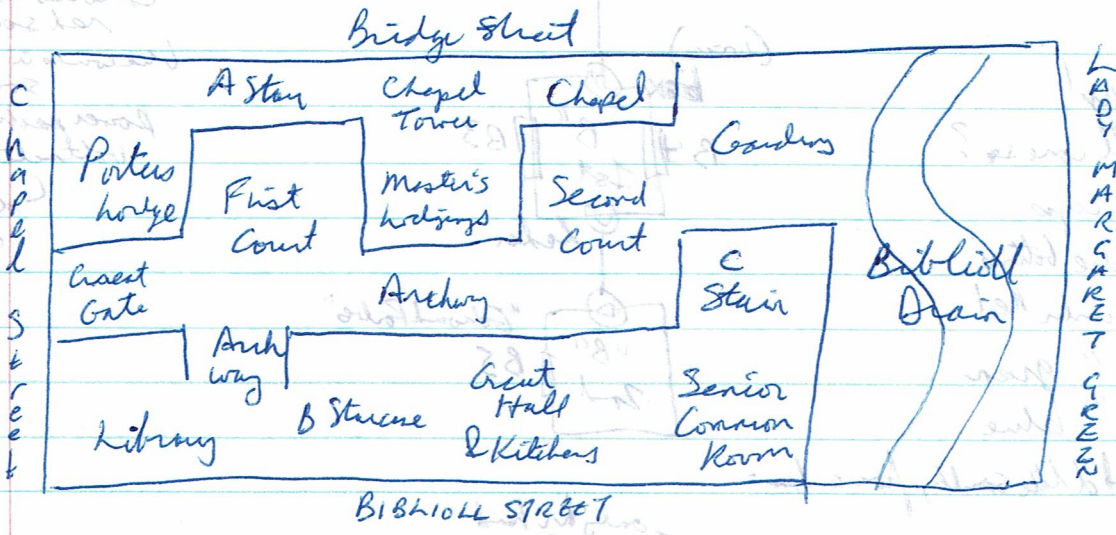 Bridge Street
A Stair
Chapel
Tower
Chapel
Gardens
Porters
Lodge
First
Court
Master's
Lodgings
Second
Court
Great
Gate
Archway
C
Stair
Bibliotl
Drain
Arch
way
Library
B Staircase
Great
Hall
& Kitchens
Senior
Common
Room
Chapel Street
LADY MARGARET GREEN
BIBLIOLL STREET